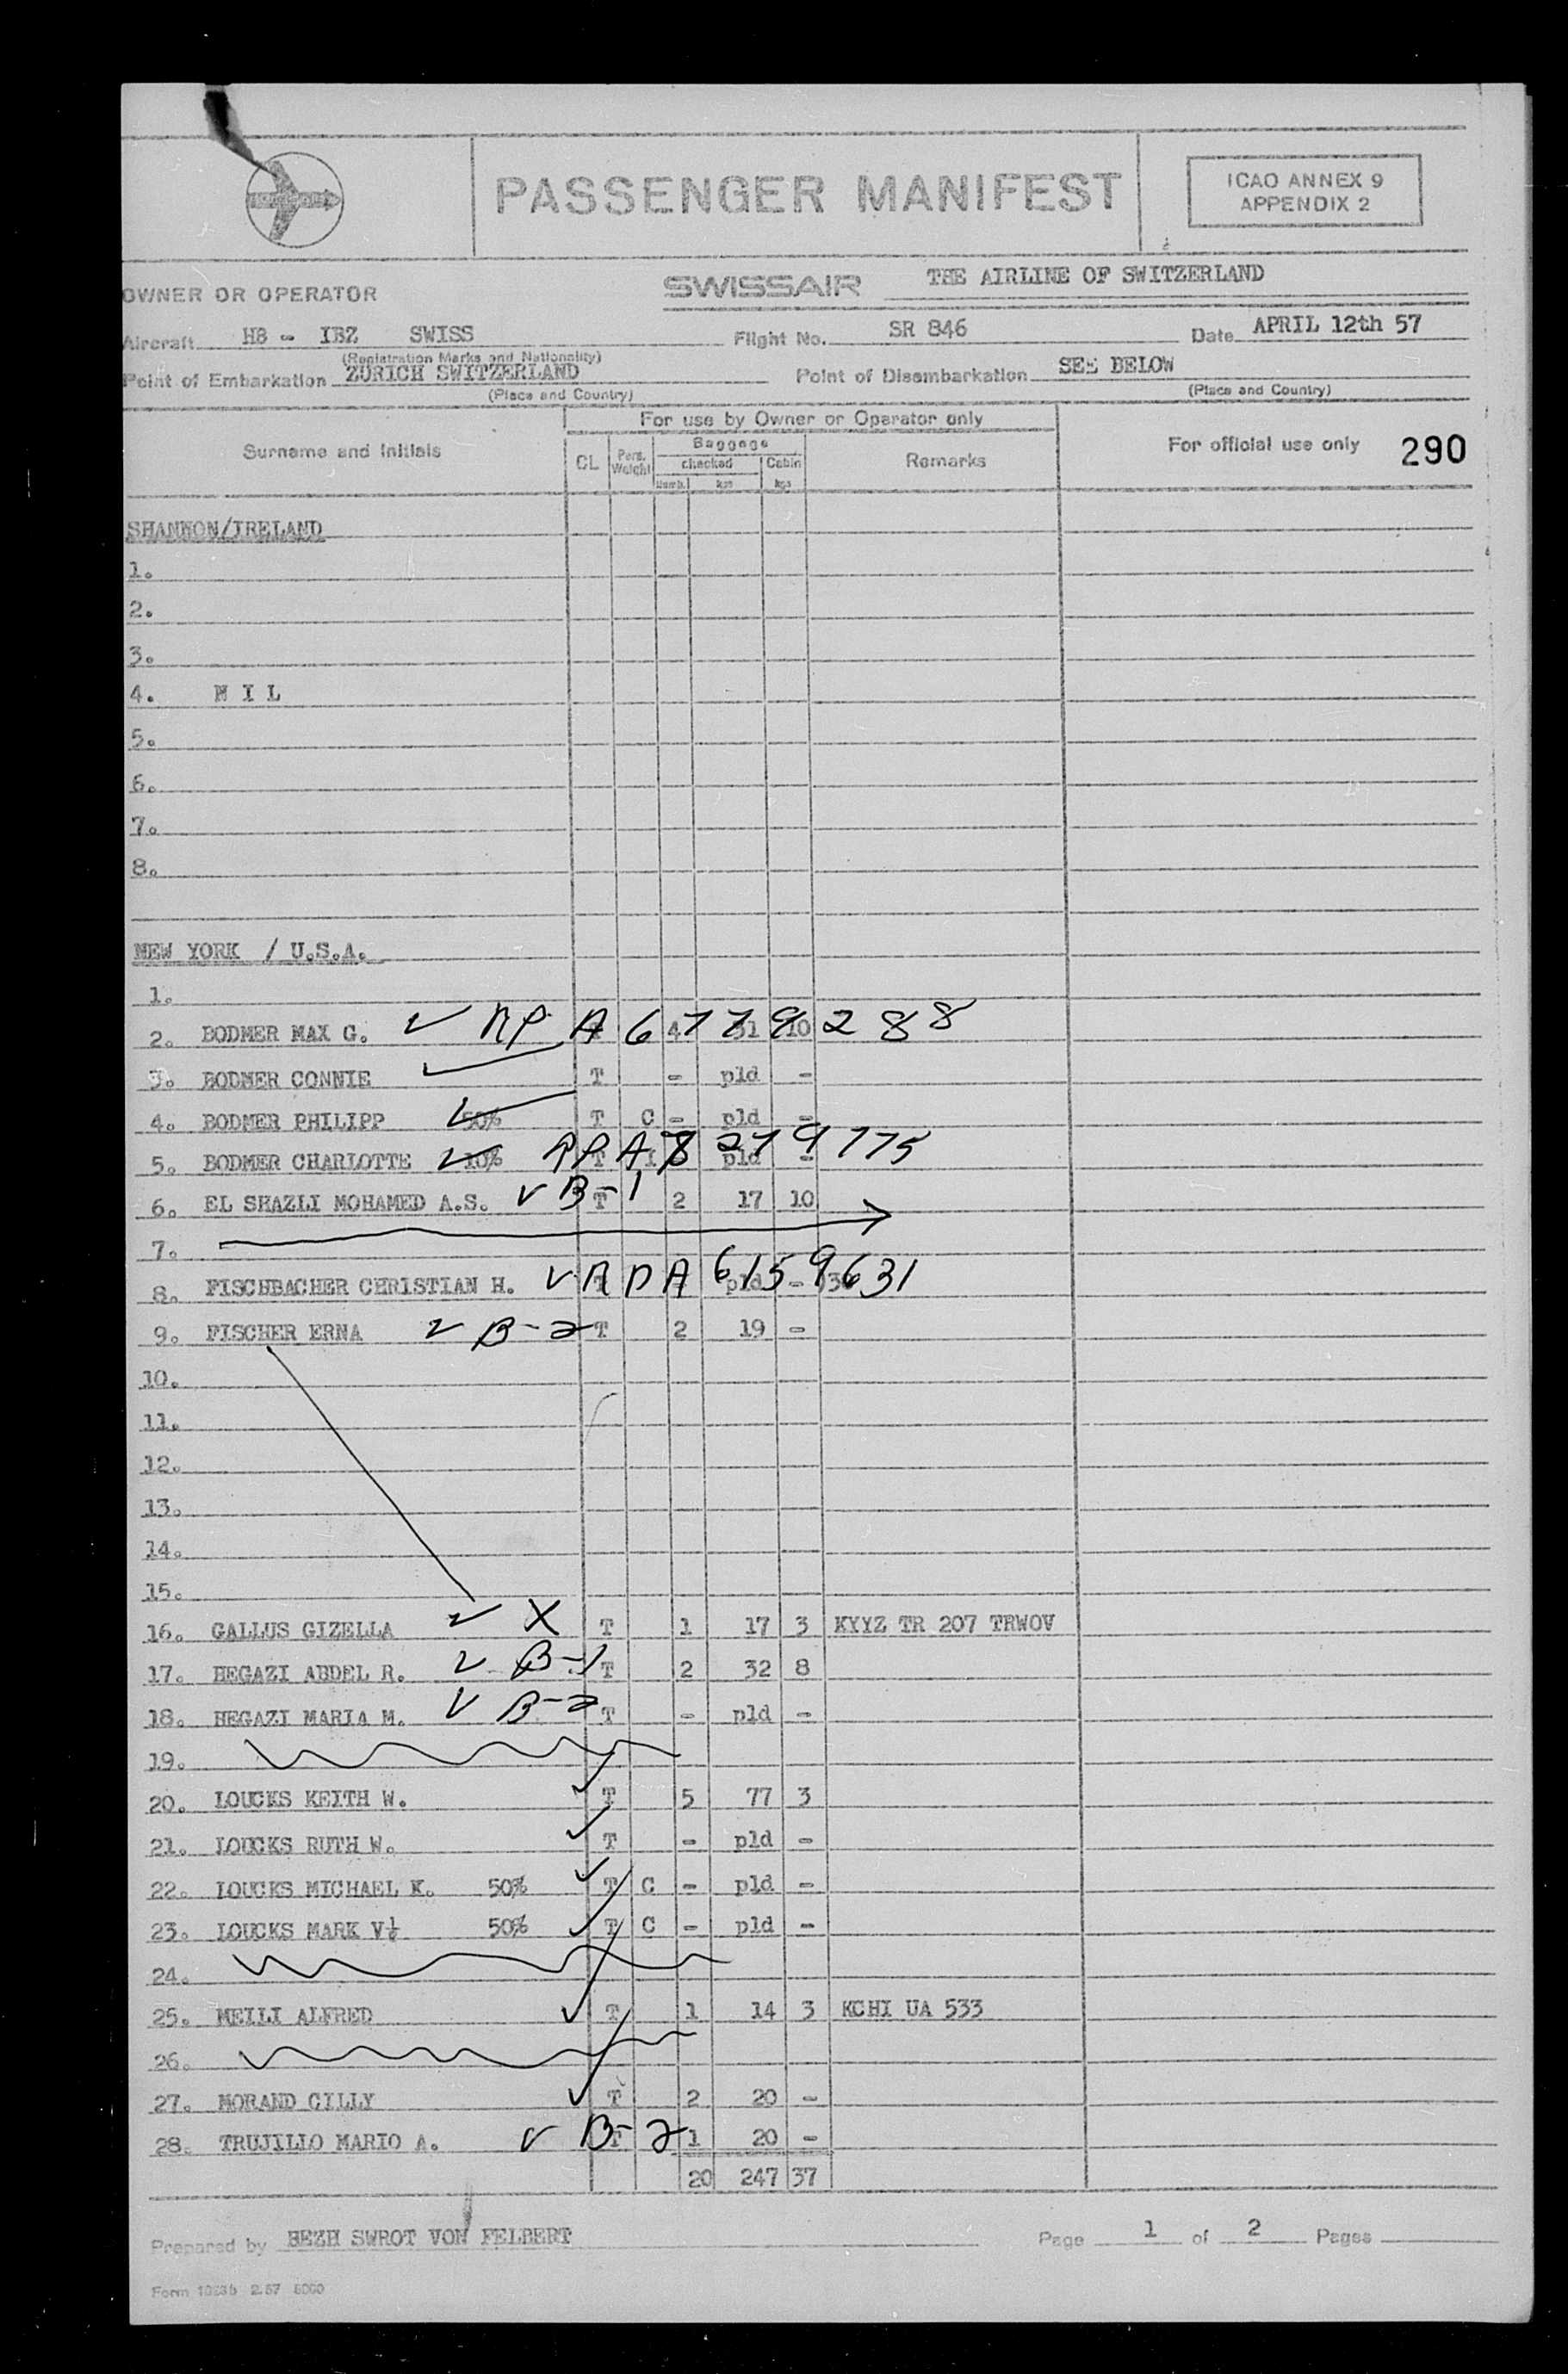 PASSENGER MANIFEST
ICAO ANNEX 9
APPENDIX 2
OWNER OR OPERATOR SWISSAIR THE AIRLINE OF SWITZERLAND
Aircraft HB - IBZ SWISS Flight No. SR 846 Date APRIL 12th 57
(Registration Marks and Nationality)
Point of Embarkation ZURICH SWITZERLAND Point of Disembarkation SEE BELOW
(Place and Country) (Place and Country)
For use by Owner or Operator only
Surname and Initials CL Pers. Weight Baggage checked Cabin Remarks For official use only 290
Numb. kgs kgs
SHANNON/IRELAND
1.
2.
3.
4. N I L
5.
6.
7.
8.
NEW YORK / U.S.A.
1.
2. BODMER MAX G. ✓ RP A6779288 4 51 10
3. BODMER CONNIE ✓ T - pld -
4. BODMER PHILIPP ✓ 50% T C - pld -
5. BODMER CHARLOTTE ✓ 10% RPA 8279775 T I pld -
6. EL SHAZLI MOHAMED A.S. ✓ B-1 T 2 17 10
7.
8. FISCHBACHER CHRISTIAN H. ✓ RPA 6159631 pld -
9. FISCHER ERNA ✓ B-2 T 2 19 -
10.
11.
12.
13.
14.
15.
16. GALLUS GIZELLA ✓ X T 1 17 3 KYYZ TR 207 TRWOV
17. HEGAZI ABDEL R. ✓ B-1 T 2 32 8
18. HEGAZI MARIA M. ✓ B-2 T - pld -
19.
20. LOUCKS KEITH W. ✓ T 5 77 3
21. LOUCKS RUTH W. ✓ T - pld -
22. LOUCKS MICHAEL K. 50% ✓ T C - pld -
23. LOUCKS MARK 50% ✓ T C - pld -
24.
25. MEILI ALFRED ✓ T 1 14 3 KCHI UA 533
26.
27. MORAND CILLY ✓ T 2 20 -
28. TRUJILLO MARIO A. ✓ B-2 T 1 20 -
20 247 37
Prepared by HEZH SWROT VON FELBERT Page 1 of 2 Pages
Form 2.57